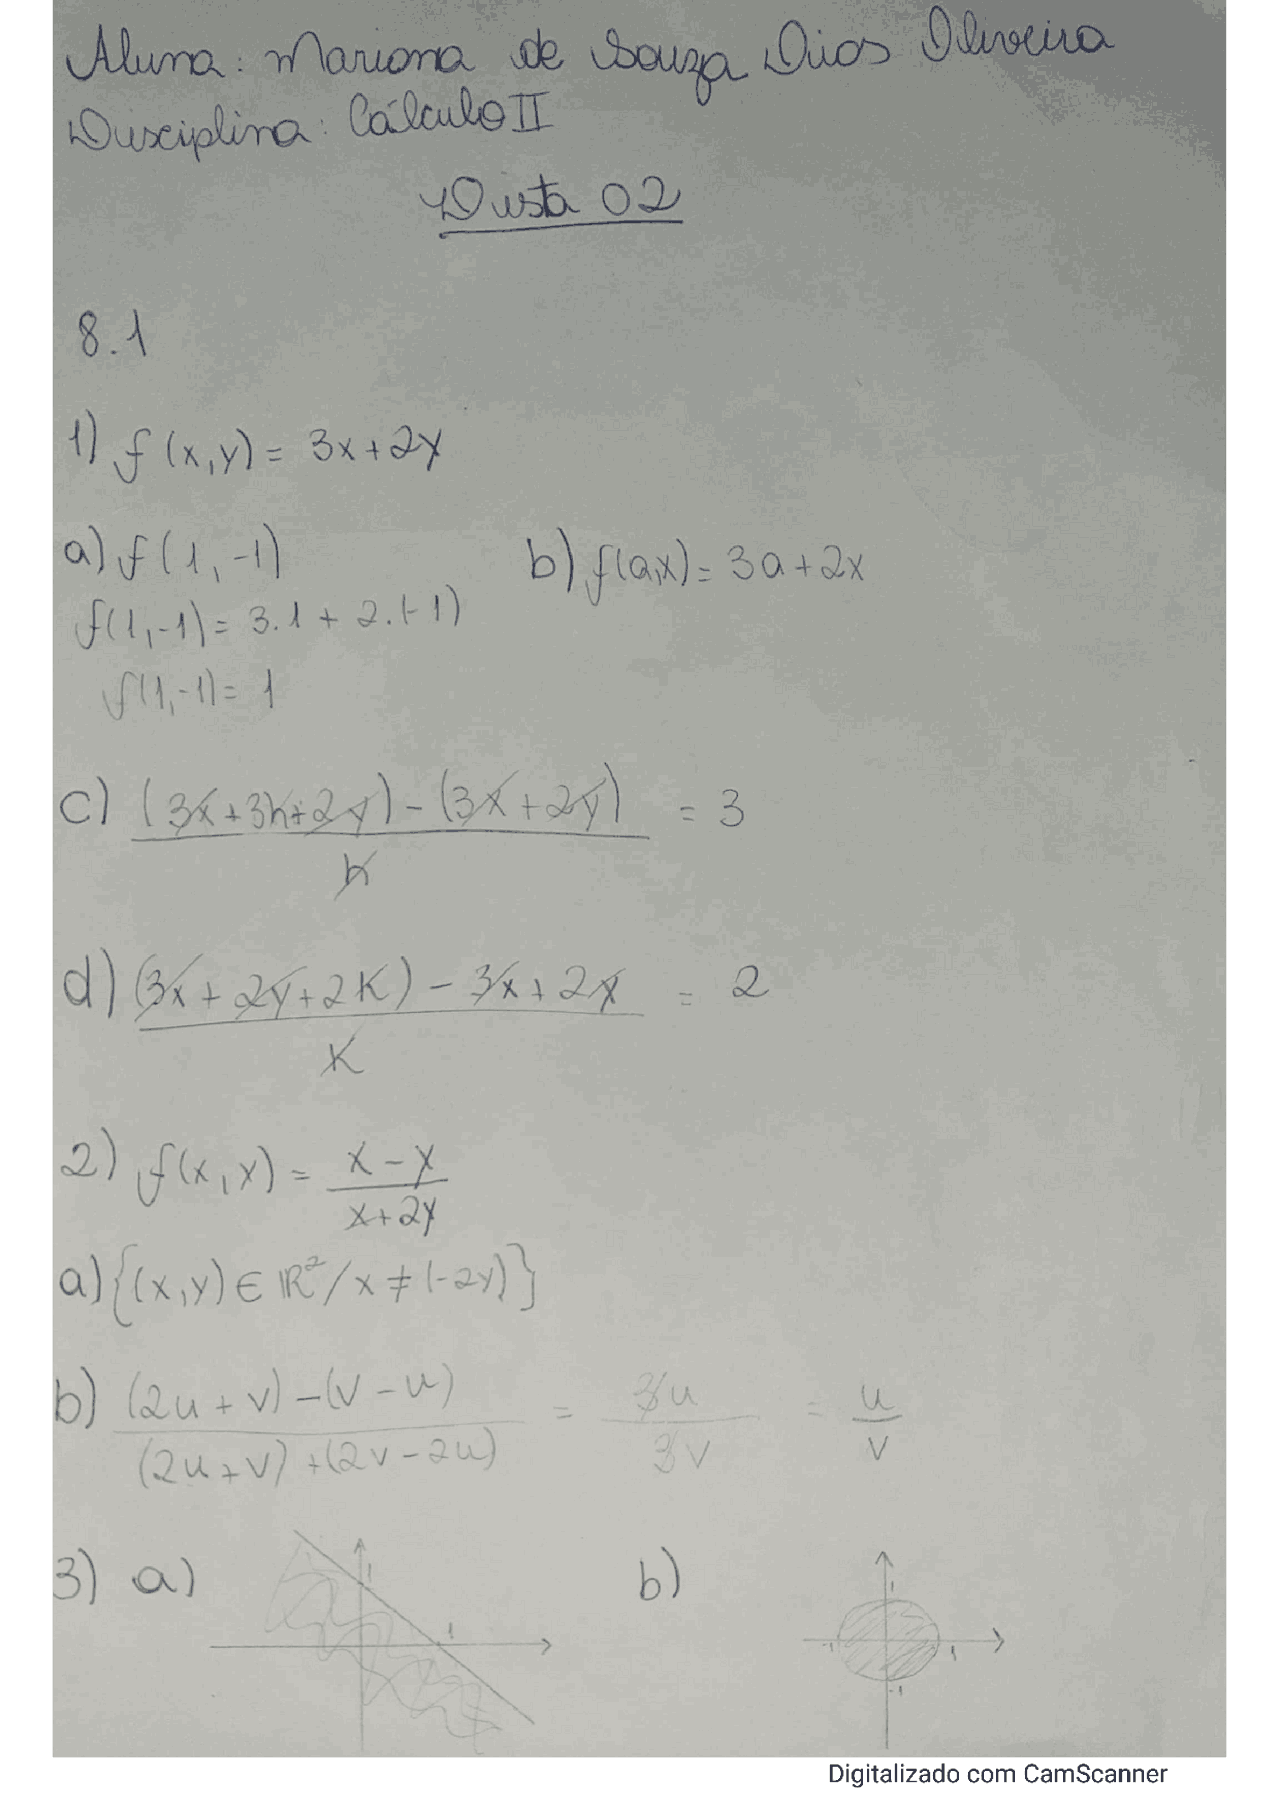 Aluna: Mariana de Souza Dias Oliveira
Disciplina: Cálculo II
Lista 02
8.1
1) f(x,y) = 3x+2y
a) f(1,-1) b) f(a,x) = 3a+2x
f(1,-1) = 3.1 + 2.(-1)
f(1,-1) = 1
c) (3x+3h+2y)-(3x+2y) = 3
h
d) (3x+2y+2K)-3x+2y = 2
K
2) f(x,y) = x-y
x+2y
a) {(x,y) ∈ ℝ²/x≠(-2y)}
b) (2u+v)-(v-u) = 3u = u
(2u+v)+(2v-2u) 3v v
3) a) 1 1 b) 1 -1 1 -1
Digitalizado com CamScanner